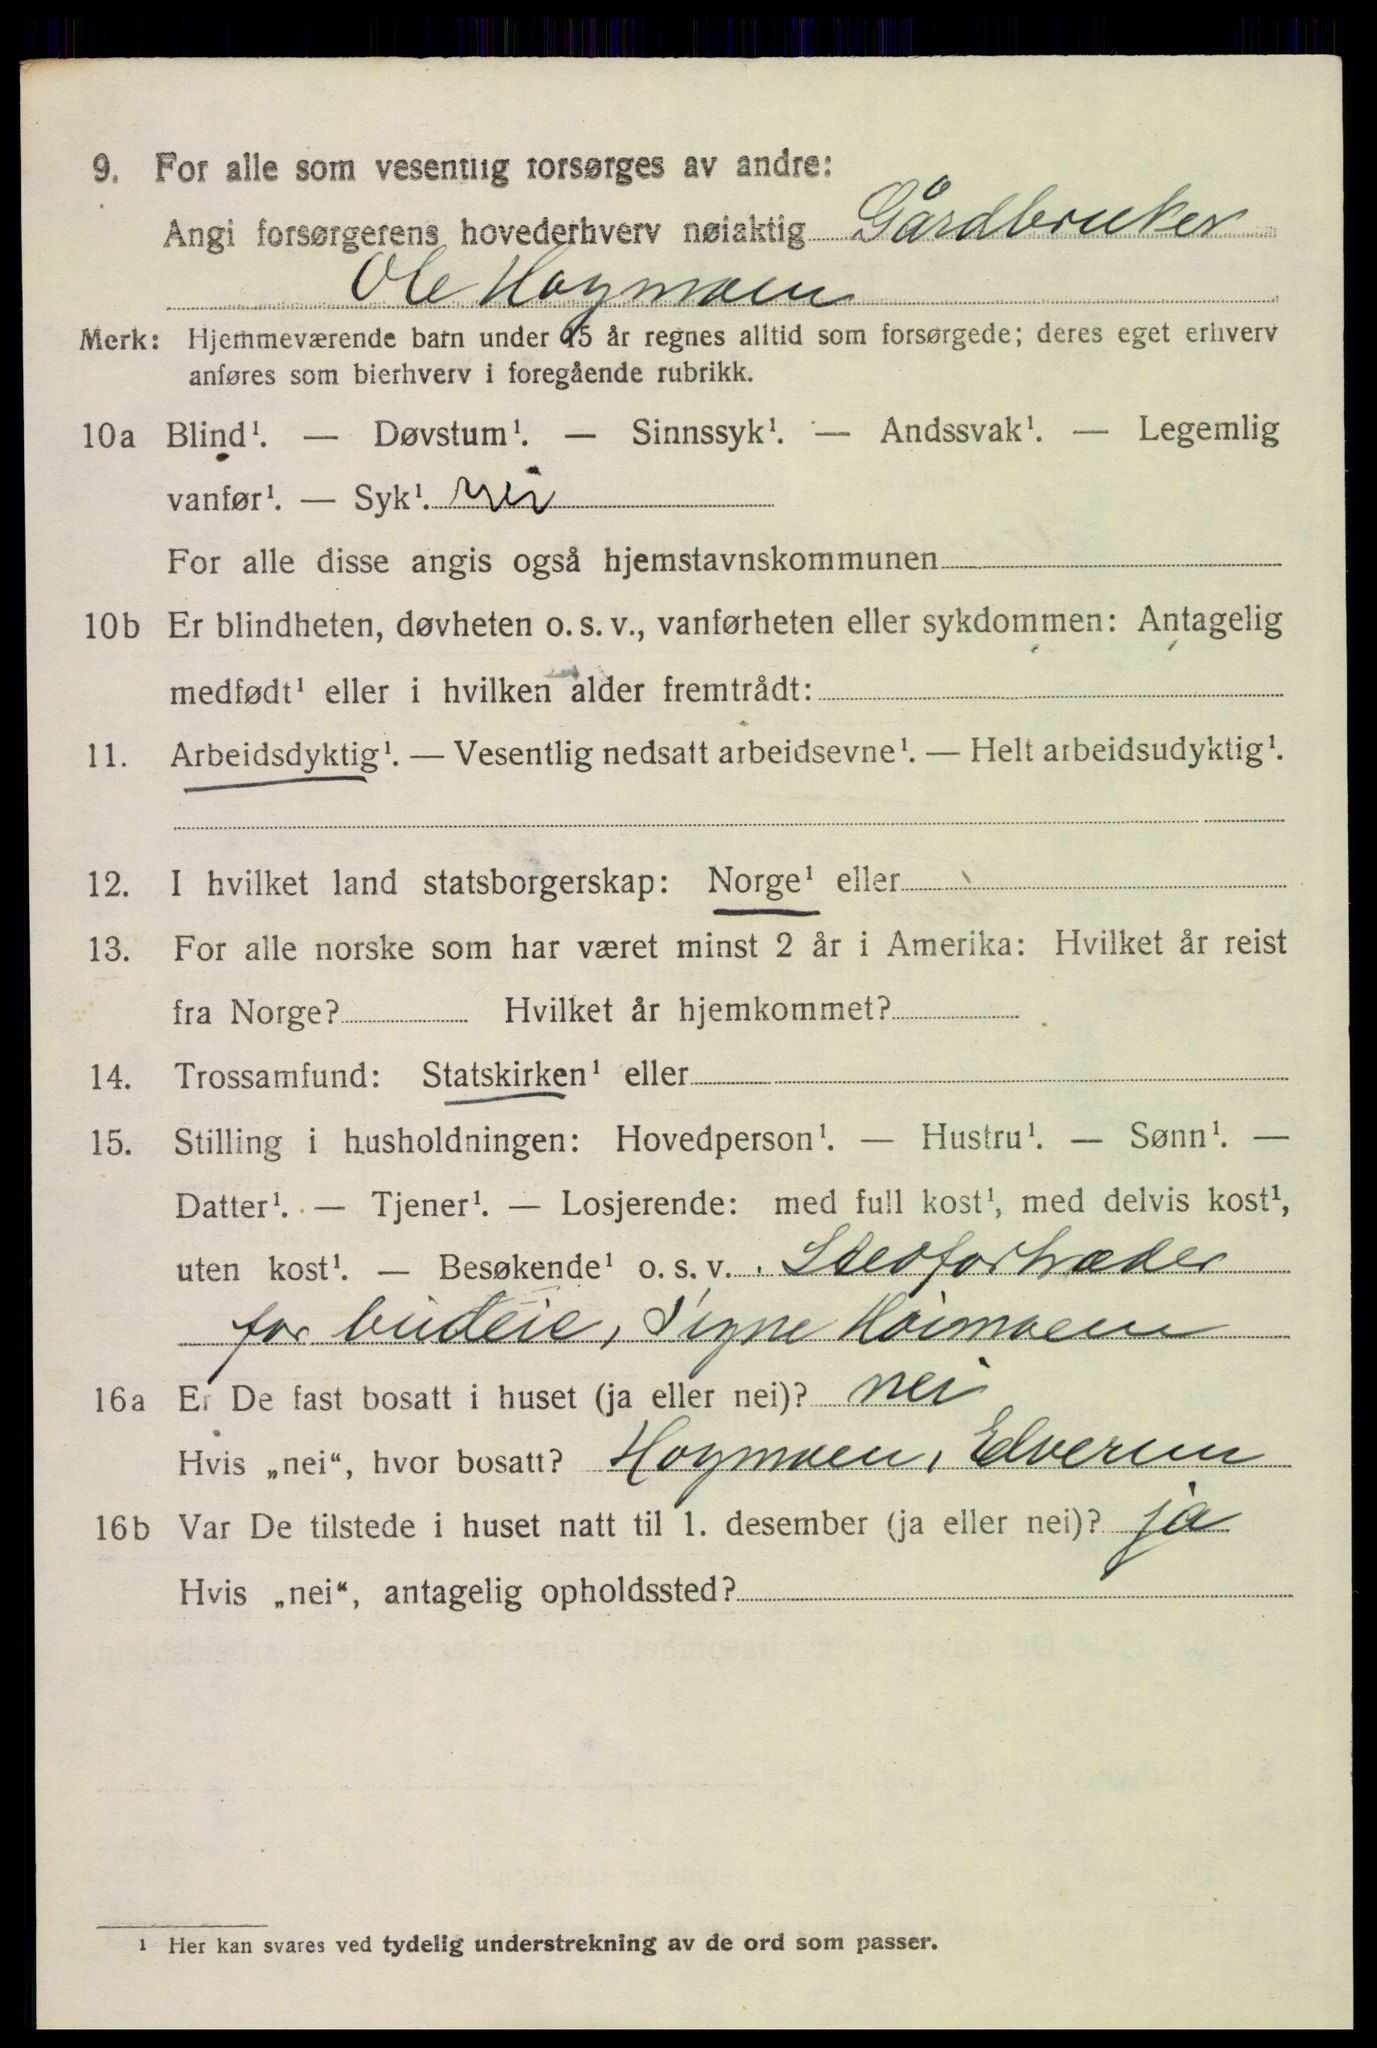 9. For alle som vesentlig forsørges av andre:
Angi forsørgerens hovederhverv nøiaktig Gårdbruker
Ole Hoymoen
Merk: Hjemmeværende barn under 15 år regnes alltid som forsørgede; deres eget erhverv
anføres som bierhverv i foregående rubrikk.
10a Blind¹. — Døvstum¹. — Sinnssyk¹. — Andssvak¹. — Legemlig
vanfør¹. — Syk¹. nei
For alle disse angis også hjemstavnskommunen
10b Er blindheten, døvheten o. s. v., vanførheten eller sykdommen: Antagelig
medfødt¹ eller i hvilken alder fremtrådt:
11. Arbeidsdyktig¹. — Vesentlig nedsatt arbeidsevne¹. — Helt arbeidsudyktig¹.
12. I hvilket land statsborgerskap: Norge¹ eller
13. For alle norske som har været minst 2 år i Amerika: Hvilket år reist
fra Norge? Hvilket år hjemkommet?
14. Trossamfund: Statskirken¹ eller
15. Stilling i husholdningen: Hovedperson¹. — Hustru¹. — Sønn¹. —
Datter¹. — Tjener¹. — Losjerende: med full kost¹, med delvis kost¹,
uten kost¹. — Besøkende¹ o. s. v. Stedfortræder
for budeie, Signe Hoimoen
16a Er De fast bosatt i huset (ja eller nei)? nei
Hvis „nei“, hvor bosatt? Hoymoen, Elverum
16b Var De tilstede i huset natt til 1. desember (ja eller nei)? ja
Hvis „nei“, antagelig opholdssted?
¹ Her kan svares ved tydelig understrekning av de ord som passer.